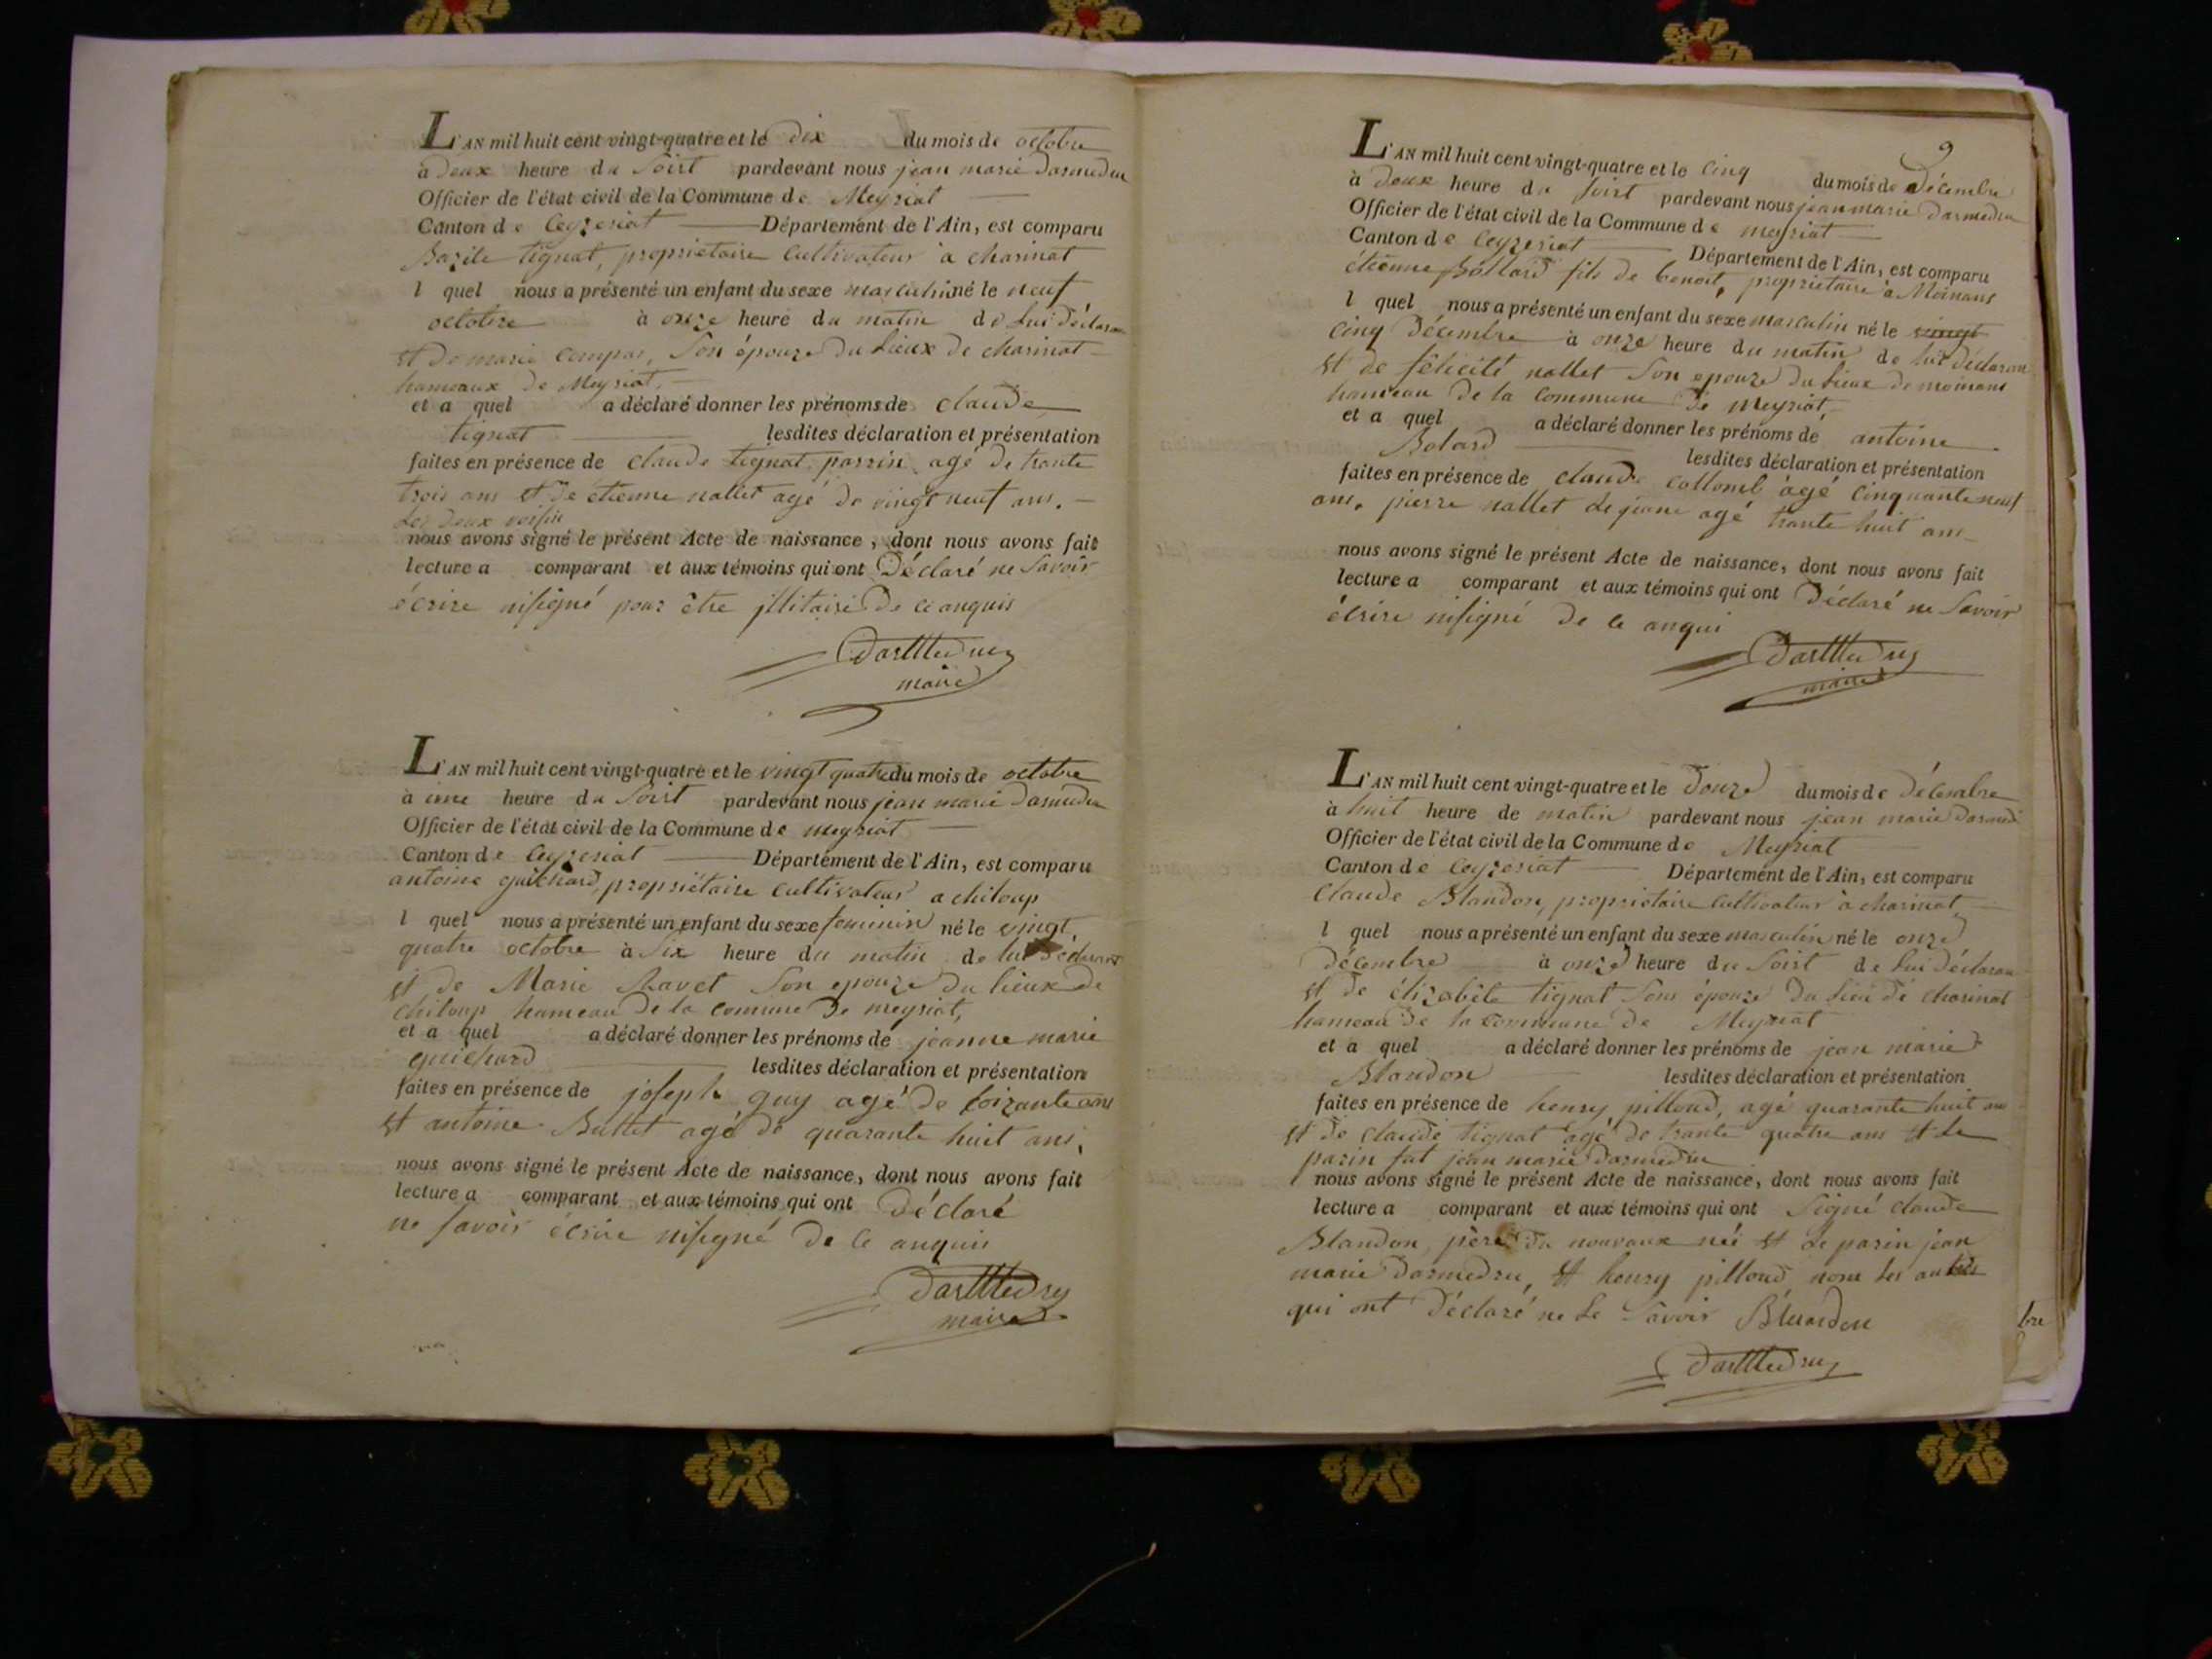 L'AN mil huit cent vingt-quatre et le dix du mois de octobre
à deux heure du soirt pardevant nous jean marie darmedru
Officier de l'état civil de la Commune de Meyriat
Canton de Ceyzeriat Département de l'Ain, est comparu
Bazile tignat, propriétaire cultivateur à charinat
l quel nous a présenté un enfant du sexe masculin né le neuf
octobre à onze heure du matin de lui déclaran
et de marie compas, son épouze du lieux de charinat
hameaux de Meyriat,
et a quel a déclaré donner les prénoms de claude
tignat lesdites déclaration et présentation
faites en présence de claude tignat parrin agé de trante
trois ans et de etienne nallet agé de vingt neuf ans.
les deux voisin
nous avons signé le présent Acte de naissance, dont nous avons fait
lecture a comparant et aux témoins qui ont Déclaré ne savoir
écrire nisigné pour être illitairé de ce anquis
Darmedru
maire
L'AN mil huit cent vingt-quatre et le vingt quatre du mois de octobre
à une heure du soirt pardevant nous jean marie darmedru
Officier de l'état civil de la Commune de meyriat
Canton de Ceyzeriat Département de l'Ain, est comparu
antoine guichard, propriétaire cultivateur a chiloup
l quel nous a présenté un enfant du sexe feminin né le vingt
quatre octobre à six heure du matin de lui déclarant
et de Marie Ravet son epouze du lieux de
chiloup hameau de la comune de meyriat,
et a quel a déclaré donner les prénoms de jeanne marie
guichard lesdites déclaration et présentation
faites en présence de joseph guy agé de soizante ans
et antoine Buttet agé de quarante huit ans,
nous avons signé le présent Acte de naissance, dont nous avons fait
lecture a comparant et aux témoins qui ont Déclaré
ne savoir écrire nisigné de ce anquis
Darmedru
maire
9
L'AN mil huit cent vingt-quatre et le cinq du mois de Décembre
à deux heure du soirt pardevant nous jean marie darmedru
Officier de l'état civil de la Commune de meyriat
Canton de Ceyzeriat Département de l'Ain, est comparu
étienne Bollard fils de benoit, propriétaire à Moinans
l quel nous a présenté un enfant du sexe masculin né le vingt
cinq décembre à onze heure du matin de lui déclaran
et de félicité nallet son epouze du lieux de moinans
hameau de la commune de Meyriat,
et a quel a déclaré donner les prénoms de antoine
Bolard lesdites déclaration et présentation
faites en présence de claude collomb àgé cinquante neuf
ans, pierre nallet le jeune agé trante huit ans
nous avons signé le présent Acte de naissance, dont nous avons fait
lecture a comparant et aux témoins qui ont Déclaré ne savoir
écrire nisigné de ce anqui
Darmedru
maire
L'AN mil huit cent vingt-quatre et le douze du mois de décembre
à huit heure de matin pardevant nous jean marie darmed
Officier de l'état civil de la Commune de Meyriat
Canton de Ceyzeriat Département de l'Ain, est comparu
Claude Blandon, propriétaire cultivateur à charinat
l quel nous a présenté un enfant du sexe masculin né le onze
décembre à onze heure du soirt de lui déclaran
et de élizabète tignat sons épouze du lieu de charinat
hameau de la commune de Meyriat
et a quel a déclaré donner les prénoms de jean marie
Blandon lesdites déclaration et présentation
faites en présence de henry pilloud, agé quarante huit ans
et de claude tignat agé de trante quatre ans et le
parin fut jean marie darmedru
nous avons signé le présent Acte de naissance, dont nous avons fait
lecture a comparant et aux témoins qui ont signé claude
Blandon, père du nouvaux néé et le parin jean
marie darmedru, et henry pilloud nom les autres
qui ont déclaré ne le savoir Blandon
Darmedru
bre